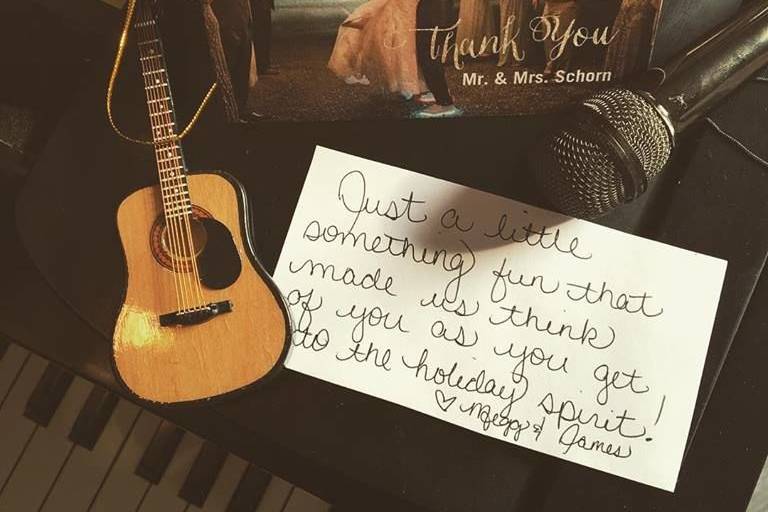 Thank You
Mr. & Mrs. Schorn
Just a little
something fun that
made us think
of you as you get
to the holiday spirit!
♡ & James